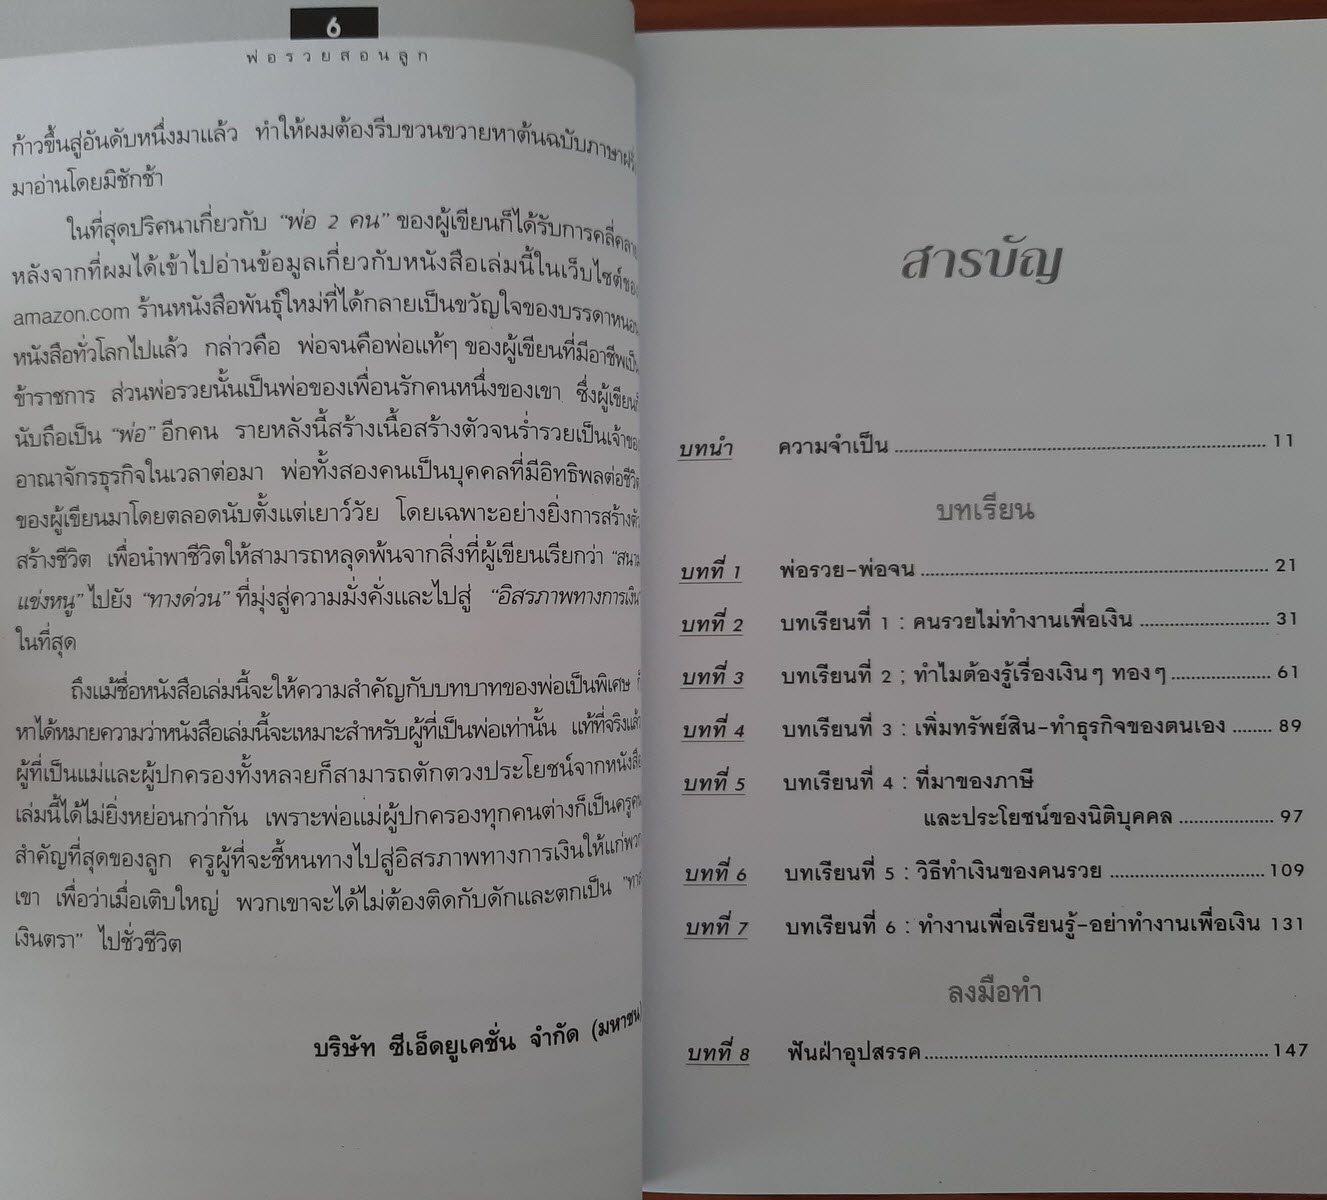 6
พ่อรวยสอนลูก
ก้าวขึ้นสู่อันดับหนึ่งมาแล้ว ทำให้ผมต้องรีบขวนขวายหาต้นฉบับภาษาฝรั่ง
มาอ่านโดยมิชักช้า
ในที่สุดปริศนาเกี่ยวกับ “พ่อ 2 คน” ของผู้เขียนก็ได้รับการคลี่คลาย
หลังจากที่ผมได้เข้าไปอ่านข้อมูลเกี่ยวกับหนังสือเล่มนี้ในเว็บไซต์ของ
amazon.com ร้านหนังสือพันธุ์ใหม่ที่ได้กลายเป็นขวัญใจของบรรดาหนอน
หนังสือทั่วโลกไปแล้ว กล่าวคือ พ่อจนคือพ่อแท้ๆ ของผู้เขียนที่มีอาชีพเป็น
ข้าราชการ ส่วนพ่อรวยนั้นเป็นพ่อของเพื่อนรักคนหนึ่งของเขา ซึ่งผู้เขียนก็
นับถือเป็น “พ่อ” อีกคน รายหลังนี้สร้างเนื้อสร้างตัวจนร่ำรวยเป็นเจ้าของ
อาณาจักรธุรกิจในเวลาต่อมา พ่อทั้งสองคนเป็นบุคคลที่มีอิทธิพลต่อชีวิต
ของผู้เขียนมาโดยตลอดนับตั้งแต่เยาว์วัย โดยเฉพาะอย่างยิ่งการสร้างตัว
สร้างชีวิต เพื่อนำพาชีวิตให้สามารถหลุดพ้นจากสิ่งที่ผู้เขียนเรียกว่า “สนาม
แข่งหนู” ไปยัง “ทางด่วน” ที่มุ่งสู่ความมั่งคั่งและไปสู่ “อิสรภาพทางการเงิน”
ในที่สุด
ถึงแม้ชื่อหนังสือเล่มนี้จะให้ความสำคัญกับบทบาทของพ่อเป็นพิเศษ ก็
หาได้หมายความว่าหนังสือเล่มนี้จะเหมาะสำหรับผู้ที่เป็นพ่อเท่านั้น แท้ที่จริงแล้ว
ผู้ที่เป็นแม่และผู้ปกครองทั้งหลายก็สามารถตักตวงประโยชน์จากหนังสือ
เล่มนี้ได้ไม่ยิ่งหย่อนกว่ากัน เพราะพ่อแม่ผู้ปกครองทุกคนต่างก็เป็นครูคน
สำคัญที่สุดของลูก ครูผู้ที่จะชี้หนทางไปสู่อิสรภาพทางการเงินให้แก่พวก
เขา เพื่อว่าเมื่อเติบใหญ่ พวกเขาจะได้ไม่ต้องติดกับดักและตกเป็น “ทาส
เงินตรา” ไปชั่วชีวิต
บริษัท ซีเอ็ดยูเคชั่น จำกัด (มหาชน)
สารบัญ
บทนำ ความจำเป็น 11
บทเรียน
บทที่ 1 พ่อรวย-พ่อจน 21
บทที่ 2 บทเรียนที่ 1 : คนรวยไม่ทำงานเพื่อเงิน 31
บทที่ 3 บทเรียนที่ 2 ; ทำไมต้องรู้เรื่องเงินๆ ทองๆ 61
บทที่ 4 บทเรียนที่ 3 : เพิ่มทรัพย์สิน-ทำธุรกิจของตนเอง 89
บทที่ 5 บทเรียนที่ 4 : ที่มาของภาษี
และประโยชน์ของนิติบุคคล 97
บทที่ 6 บทเรียนที่ 5 : วิธีทำเงินของคนรวย 109
บทที่ 7 บทเรียนที่ 6 : ทำงานเพื่อเรียนรู้-อย่าทำงานเพื่อเงิน 131
ลงมือทำ
บทที่ 8 ฟันฝ่าอุปสรรค 147